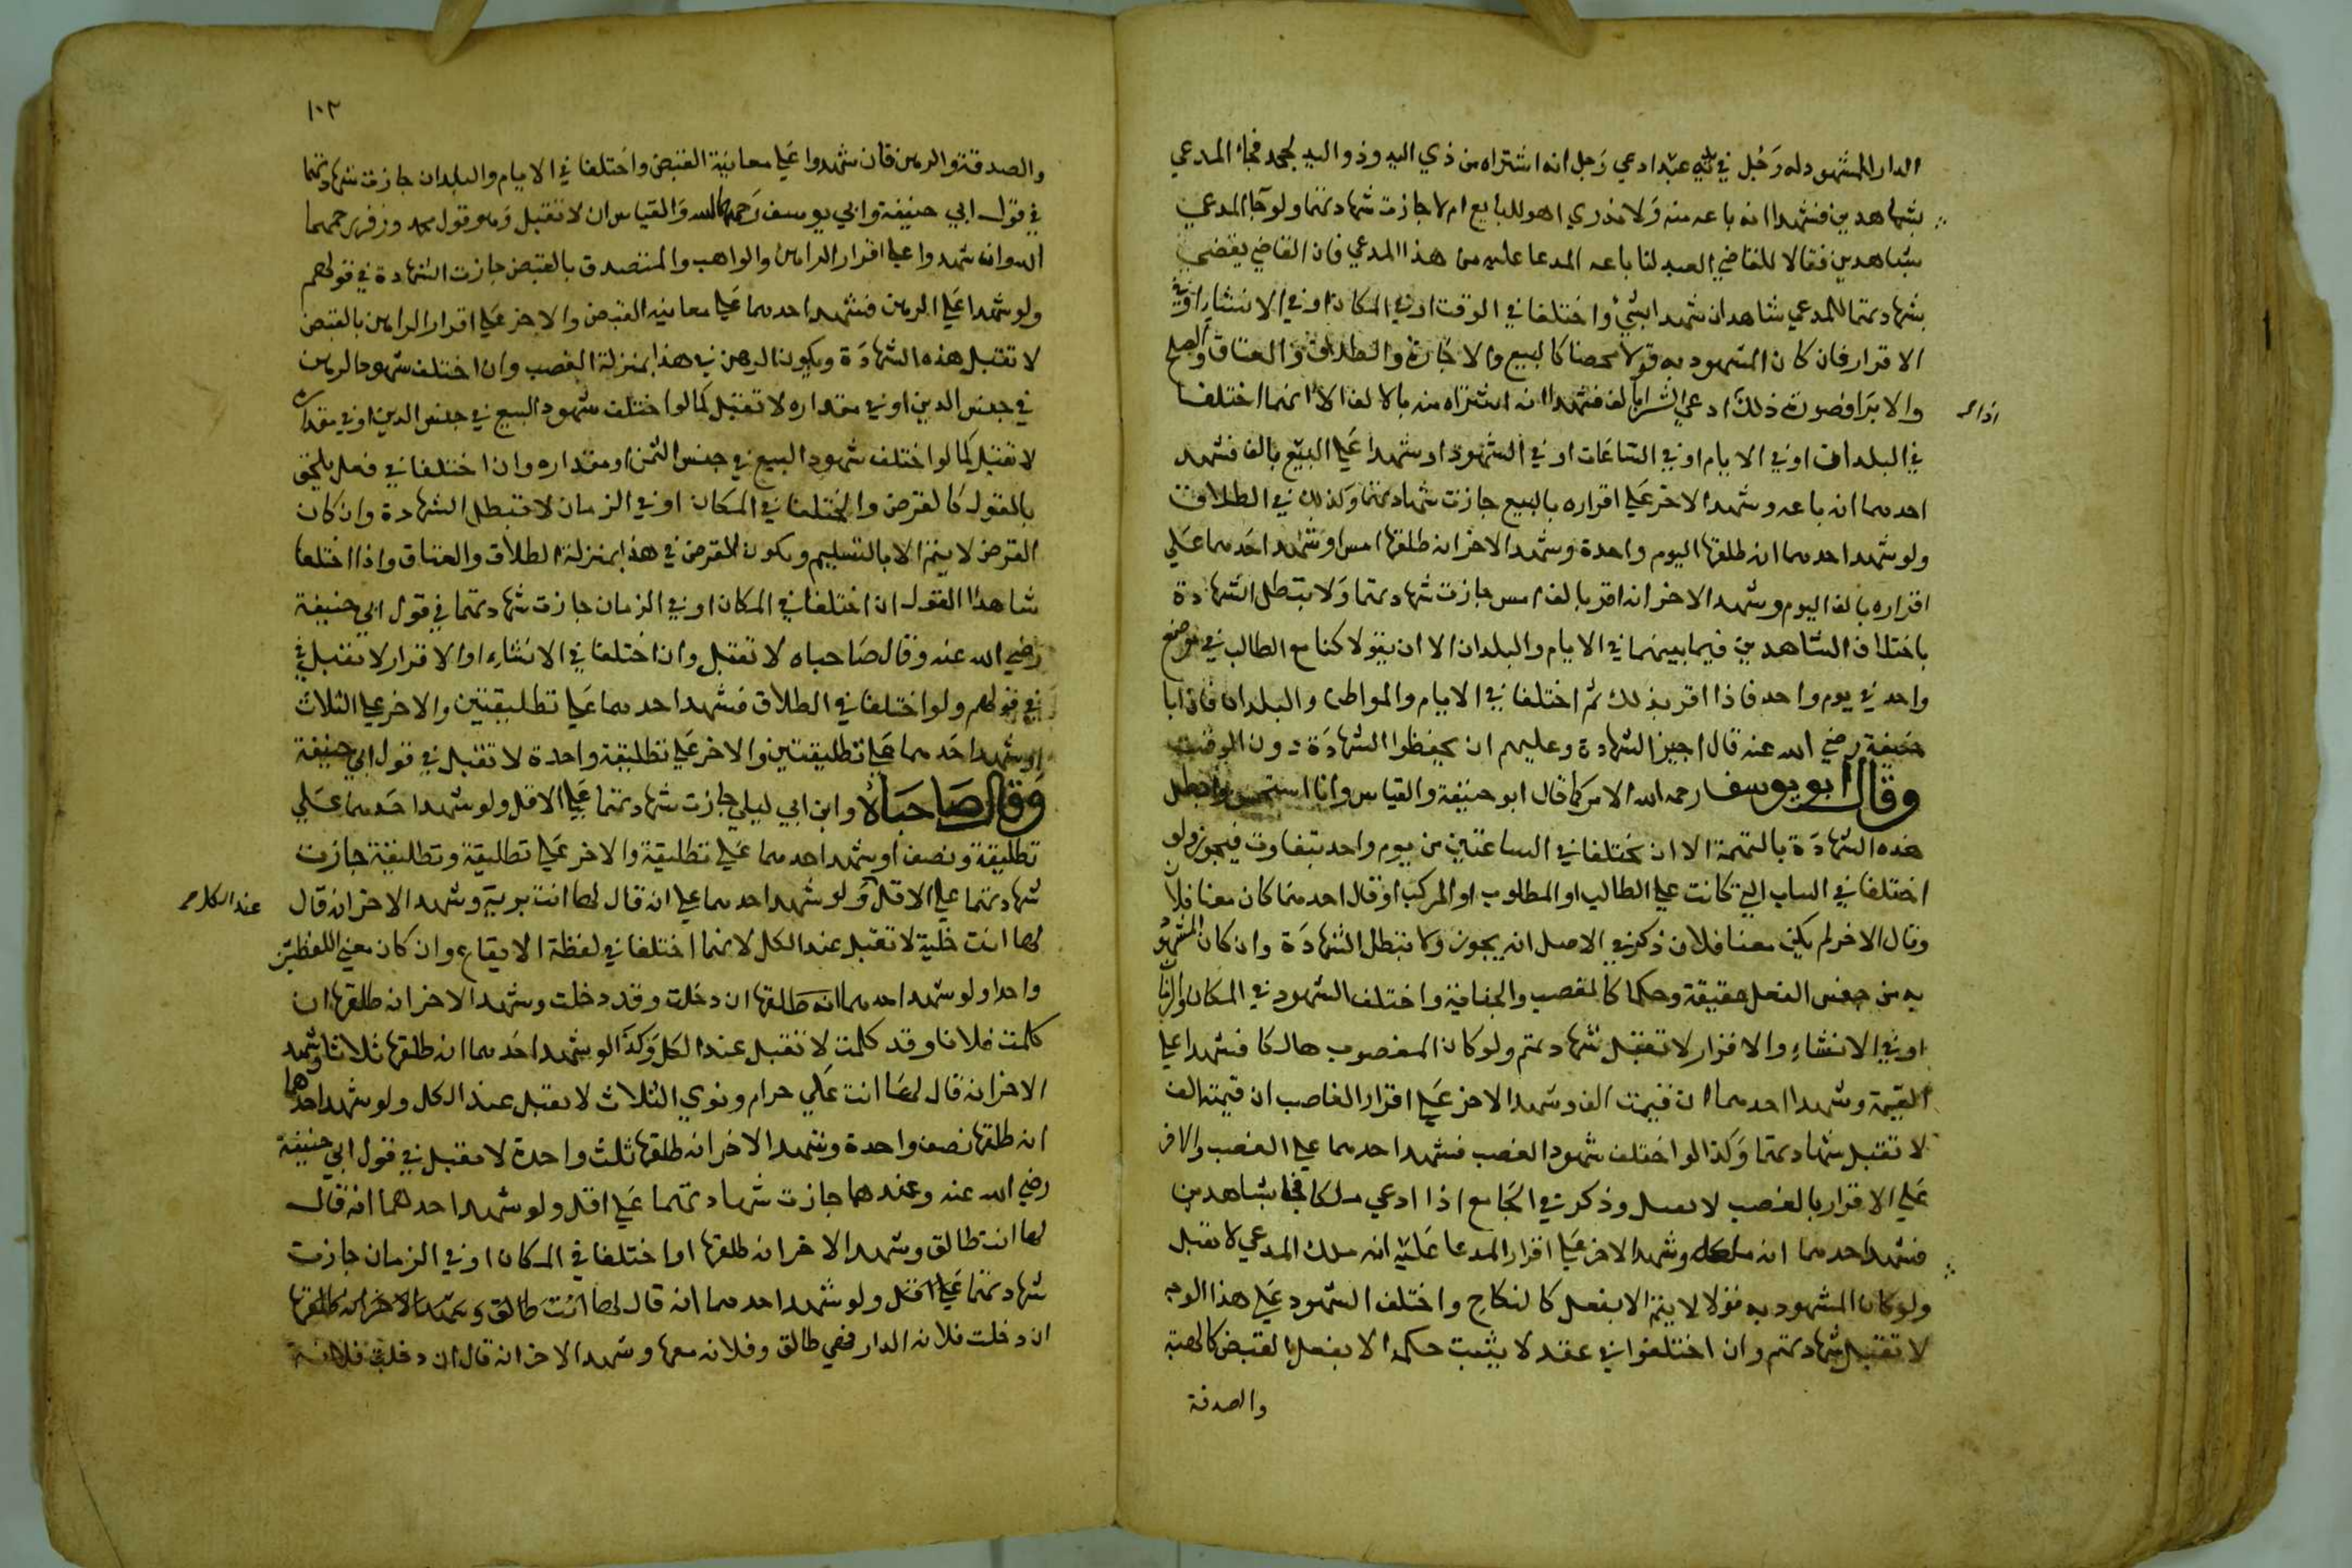 الدار للمشهود له رجل في يده عبد ادعي رجل انه اشتراه من ذي اليد وذو اليد يجحد فجاء المدعي
بشاهدين فشهدا انه باعه منه ولا ندري اهو للبايع ام لا جازت شهادتهما ولو جا المدعي
بشاهدين فقالا للقاضي العبد لنا باعه المدعا عليه من هذا المدعي فان القاضي يقضي
بشهادتهما للمدعي شاهدان شهدا بشيء واختلفا في الوقت او في المكان او في الانشاء او في
الاقرار فان كان المشهود به قولا محضا كالبيع والاجارة والطلاق والعتاق والصلح
والابرا وصورة ذلك ادعي الشرا بالف فشهدا انه اشتراه منه بالالف الا انهما اختلفا
في البلدان او في الايام او في الساعات او في الشهود او شهدا علي البيع بالف فشهد
احدهما انه باعه وشهد الاخر علي اقراره بالبيع جازت شهادتهما وكذلك في الطلاق
ولو شهد احدهما انه طلقها اليوم واحدة وشهد الاخر انه طلقها امس او شهد احدهما علي
اقراره بالف اليوم وشهد الاخر انه اقر بالف امس جازت شهادتهما ولا تبطل الشهادة
باختلاف الشاهدين فيما بينهما في الايام والبلدان الا ان يقولا كنا مع الطالب في موضع
واحد في يوم واحد فاذا اقر بذلك ثم اختلفا في الايام والمواطن والبلدان فان ابا
حنيفة رضي الله عنه قال اجيز الشهادة وعليهم ان يحفظوا الشهادة دون الوقت
وقال ابو يوسف رحمه الله الامر كما قال ابو حنيفة والقياس وانا استحسن وابطل
هذه الشهادة بالتهمة الا ان يختلفا في الساعتين من يوم واحد بتفاوت فيجوز ولو
اختلفا في الثياب التي كانت علي الطالب او المطلوب او المركب او قال احدهما كان معنا فلان
وقال الاخر لم يكن معنا فلان ذكر في الاصل انه يجوز ولا تبطل الشهادة وان كان المشهود
به من جنس الفعل حقيقة وحكما كالغصب والجناية واختلف الشهود في المكان والزمان
او في الانشاء والاقرار لا تقبل شهادتهم ولو كان المغصوب هالكا فشهدا علي
القيمة وشهد احدهما ان قيمته الف وشهد الاخر علي اقرار الغاصب ان قيمته الف
لا تقبل شهادتهما وكذا لو اختلف شهود الغصب فشهد احدهما علي الغصب والاخر
علي الاقرار بالغصب لا تقبل وذكر في الجامع اذا ادعي ملكا فجا بشاهدين
فشهد احدهما انه ملكه وشهد الاخر علي اقرار المدعا عليه انه ملك المدعي لا تقبل
ولو كان المشهود به قولا لا يتم الا بفعل كالنكاح واختلف الشهود علي هذا الوجه
لا تقبل شهادتهم وان اختلفوا في عقد لا يثبت حكمه الا بفعل القبض كالهبة
والصدقة
١٠٢
والصدقة والرهن فان شهدوا علي معاينة القبض واختلفا في الايام والبلدان جازت شهادتهما
في قول ابي حنيفة وابي يوسف رحمهما الله والقياس ان لا تقبل وهو قول محمد وزفر رحمهما
الله وان شهدوا علي اقرار الراهن والواهب والمتصدق بالقبض جازت الشهادة في قولهم
ولو شهدا علي الرهن فشهد احدهما علي معاينة القبض والاخر علي اقرار الراهن بالقبض
لا تقبل هذه الشهادة ويكون الرهن في هذا بمنزلة الغصب وان اختلف شهود الرهن
في جنس الدين او في مقداره لا تقبل كما لو اختلف شهود البيع في جنس الدين او في مقداره
لا تقبل كما لو اختلف شهود البيع في جنس الثمن او مقداره وان اختلفا في فعل يلحق
بالقول كالقرض واختلفا في المكان او في الزمان لا تبطل الشهادة وان كان
القرض لا يتم الا بالتسليم ويكون القرض في هذا بمنزلة الطلاق والعتاق واذا اختلفا
شاهدا القول ان اختلفا في المكان او في الزمان جازت شهادتهما في قول ابي حنيفة
رضي الله عنه وقال صاحباه لا تقبل وان اختلفا في الانشاء او الاقرار لا تقبل في
في قولهم ولو اختلفا في الطلاق فشهد احدهما علي تطليقتين والاخر علي الثلاث
او شهد احدهما علي تطليقتين والاخر علي تطليقة واحدة لا تقبل في قول ابي حنيفة
وقال صاحباه وابن ابي ليلي جازت شهادتهما علي الاقل ولو شهد احدهما علي
تطليقة ونصف او شهد احدهما علي تطليقة والاخر علي تطليقة وتطليقة جازت
شهادتهما علي الاقل ولو شهد احدهما علي ان قال لها انت برية وشهد الاخر انه قال
لها انت خلية لا تقبل عند الكل لانهما اختلفا في لفظة الايقاع وان كان معني اللفظين
واحدا ولو شهد احدهما انه طلقها ان دخلت وقد دخلت وشهد الاخر انه طلقها ان
كلمت فلانا وقد كلمت لا تقبل عند الكل وكذا لو شهد احدهما انه طلقها ثلاثا وشهد
الاخر انه قال لها انت علي حرام ونوي الثلاث لا تقبل عند الكل ولو شهد احدهما
انه طلقها نصف واحدة وشهد الاخر انه طلقها ثلث واحدة لا تقبل في قول ابي حنيفة
رضي الله عنه وعندهما جازت شهادتهما علي اقل ولو شهد احدهما انه قال
لها انت طالق وشهد الاخر انه طلقها او اختلفا في المكان او في الزمان جازت
شهادتهما علي اقل ولو شهد احدهما انه قال لها انت طالق وشهد الاخر انه طلقها
ان دخلت فلانه الدار فهي طالق وفلانه معها وشهد الاخر انه قال ان دخلت فلانة